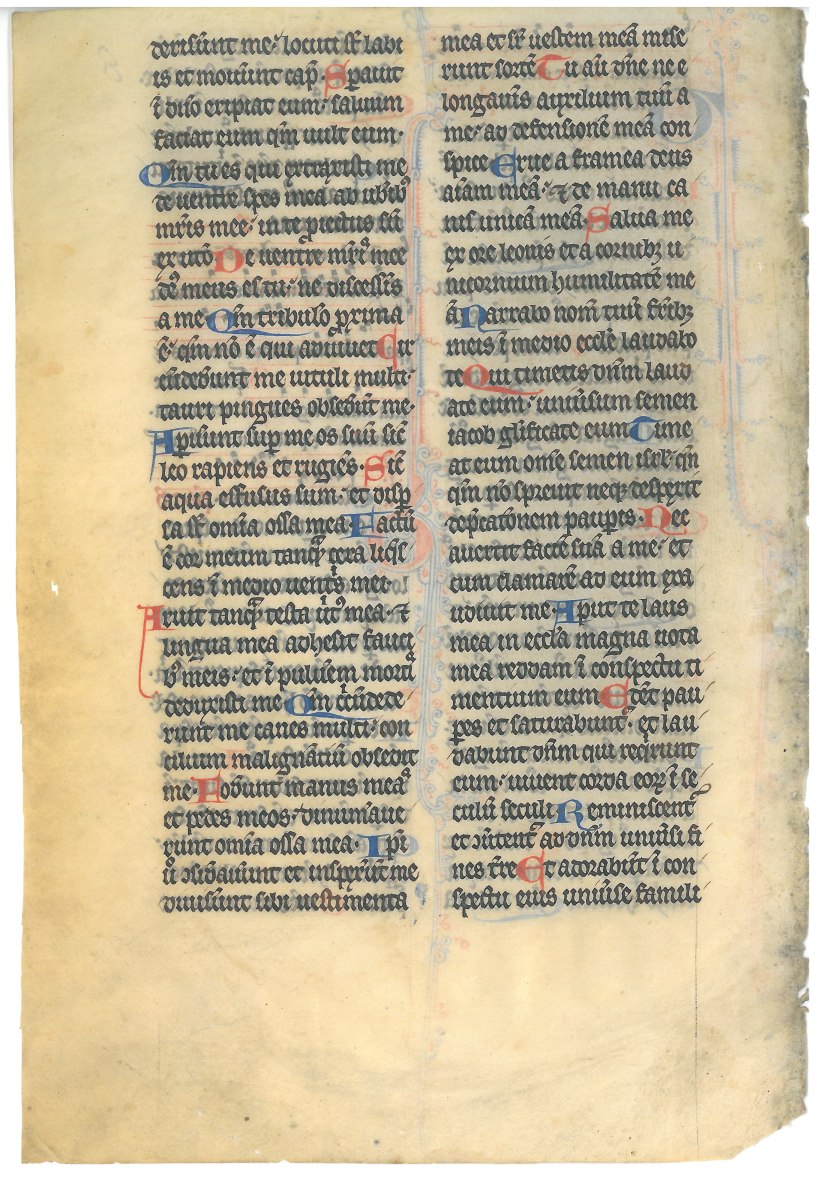 deriserunt me: locuti st̄ labi
is et mouerunt cap̄. Sperauit
ī dn̄o eripiat eum: saluum
faciat eum qm̄ uult eum.
Qm̄ tu es qui extraxisti me
de uentre spes mea ab ub̄ibꝰ
mr̄is mee: in te proiectus sū
ex utō De uentre mr̄is mee
ds̄ meus es tu: ne discess̄is
a me Qm̄ tribulō ꝓxima
ē: qm̄ nō ē qui adiuuet Cir
cūded̄unt me uituli multi:
tauri pingues obsed̄ūt me.
Aperuūnt suꝑ me os suū sic̄
leo rapiens et rugiēs. Sic̄
aqua effusus sum: et disp̄
sa st̄ om̄ia ossa mea. Factū
ē cor meum tanqͣ cera liq̄s
cens ī medio uent̄s mei.
Aruit tanqͣ testa uītꝰ mea: ⁊
lingua mea adhesit fauci
bꝰ meis: et ī puluerem mortis
deduxisti me Qm̄ ccūdede
runt me canes multi: con
cilium malignātiū obsedit
me. Fod̄unt manus meas
et pedes meos: dinum̄aue
runt om̄ia ossa mea. Ip̄i
ū ↄsid̄auerunt et inspex̄ūt me
diuiserunt sibi uestimenta
mea et sr̄ uestem meā mise
runt sortē Tu aū dn̄e ne e
longau̾is auxilium tuū a
me: ad defensionē meā con
spice Erue a framea deus
aīam meā: ⁊ de manu ca
nis unicā meā. Salua me
ex ore leonis et a cornibꝫ u
nicornium humilitatē me
ā Narrabo nom̄ tuū fr̄ibꝫ
meis ī medio eccl̄e laudabo
te Qui timetis dn̄m laud
ate eum: uniūsum semen
iacob gl̄ificate eum Time
at eum om̄e semen isrl̄ qm̄
qm̄ nō spreuit neqꝫ despexit
dep̄catōnem paupis. Nec
auertit faciē suā a me: et
cum clamarē ad eum exa
udiuit me. Aput te laus
mea in eccl̄a magna uota
mea reddam ī conspectu ti
mentium eum Edēt pau
ꝑes et saturabunt᷑. et lau
dabunt dn̄m qui reqͥrunt
eum: uiuent corda eorꝫ ī se
culū seculi Reminiscent᷑
et ↄūtent᷑ ad dn̄m uniūsi fi
nes tr̄re Et adorabūt ī con
spectu eius uniūse famili